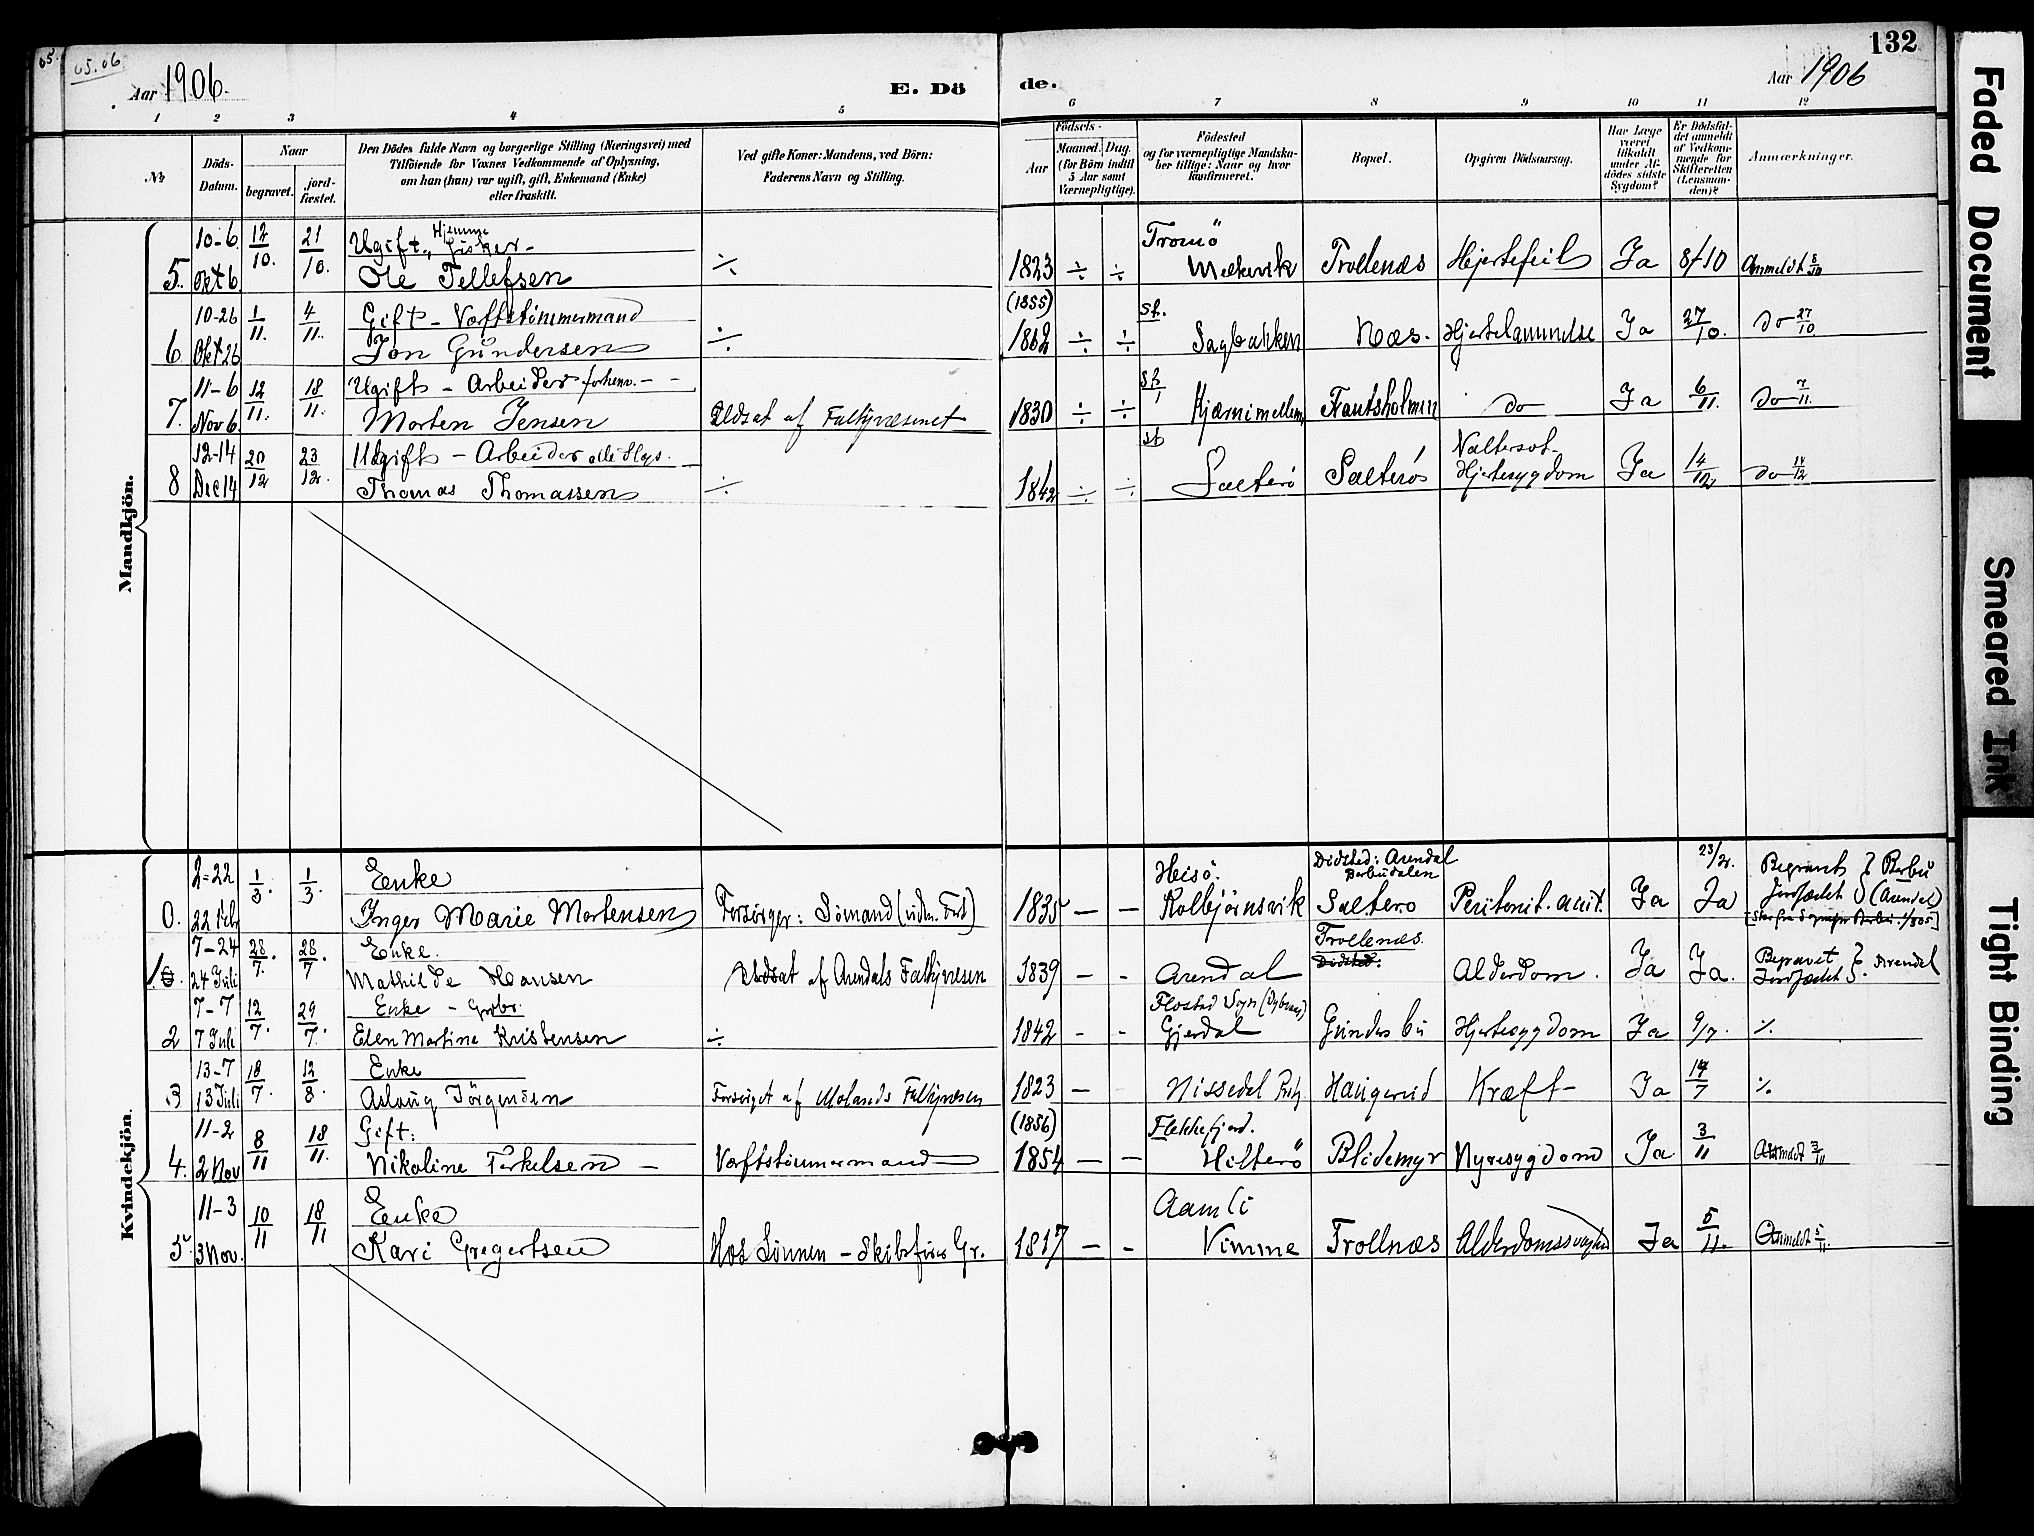 05.06
Aar 1906.
E. Döde.
132
Aar 1906
1 2 3 4 5 6 7 8 9 10 11 12
№
Döds-Datum.
Naar
begravet.
jordfæstet.
Den Dödes fulde Navn og borgerlige Stilling (Næringsvei) med
Tilföiende for Voxnes Vedkommende af Oplysning,
om han (hun) var ugift, gift, Enkemand (Enke)
eller fraskilt.
Ved gifte Koner: Mandens, ved Börn:
Faderens Navn og Stilling.
Födsels-
Aar
Maaned.
Dag.
(for Börn indtil
5 Aar samt
Værnepligtige).
Födested
og for værnepligtige Mandskaber
tillige: Naar og hvor
konfirmeret.
Bopæl.
Opgiven Dödsaarsag.
Har Læge
været
tilkaldt
under Afdödes
sidste
Sygdom?
Er Dödsfaldet
anmeldt
af Vedkommende
for
Skifteretten
(Lensmanden)?
Anmærkninger.
Mandkjön.
10-6 12/10. 21/10. Ugift, Hjemme Fisker - Tromö
5. Okt 6 Ole Tellefsen ÷ 1823 ÷ ÷ Trollenæs Hjertefeil Ja 8/10 Anmeldt 8/10
10-26 1/11. 4/11. Gift - Værftstömmermand (1855)
6 Okt 26 Jon Gundersen ÷ 1862 ÷ ÷ Sagbakken Næs. Hjertelammelse Ja 27/10. do 27/10
11-6 12/11. 18/11. Ugift - Arbeider forhenv. -
7. Nov 6 Morten Jensen Udsat af Fattigvæsenet 1830 ÷ ÷ do Ja 6/11. do 7/11.
12-14 20/12 23/12. Ugift - Arbeider
8 Dec 14 Thomas Thomassen ÷ 1842 ÷ ÷ Salterö Salterö Vattersot - Hjertesygdom Ja 14/12 do 14/12
Kvindekjön.
2-22 1/3. 1/3. Enke Heisö. Dødsted: Arendal Barbudalen 23/2. Begravet } Barbu
0. 22 Febr Inger Marie Mortensen 1835 - - Kolbjörnsvik Salterö Peritonit. acut. Ja Ja Jordfæstet } (Arendal)
7-24 28/7. 28/7 Enke. Trollenæs.
1. 24 Juli Mathilde Hansen Udsat af Arendals Fattigvæsen 1839 - - Arendal Alderdom. Ja Ja. Begravet Jordfæstet } Arendal
7-7 12/7. 29/7. Enke - Flosta Sogn
2 7 Juli Elen Martine Kristensen ÷ 1842 - - Gjerdal Gundersbu Hjertesygdom Ja 9/7. ٪
13-7 18/7. 12/8. Enke
3 13 Juli Aslaug Jörgensen Forsörget af Molands Fattigvæsen 1823 - Nissedal Haugerud Kræft - Ja 14/7 ٪
11-2 8/11 18/11. Gift: (1856) Flekkefjord.
4. 2 Nov Nikoline Terkelsen - Værftstömmermand 1854 - - Hitterö Blidemyr Nyresygdom Ja 3/11 Anmeldt 3/11
11-3 10/11 18/11 Enke Aamli
5 3 Nov. Kari Gregertsen Hos Sönnen - Skibsförer Gr. 1817 - - Vimme Trollnæs Alderdomssvaghed Ja 5/11. Anmeldt 5/11.
Faded Document
Smeared Ink
Tight Binding